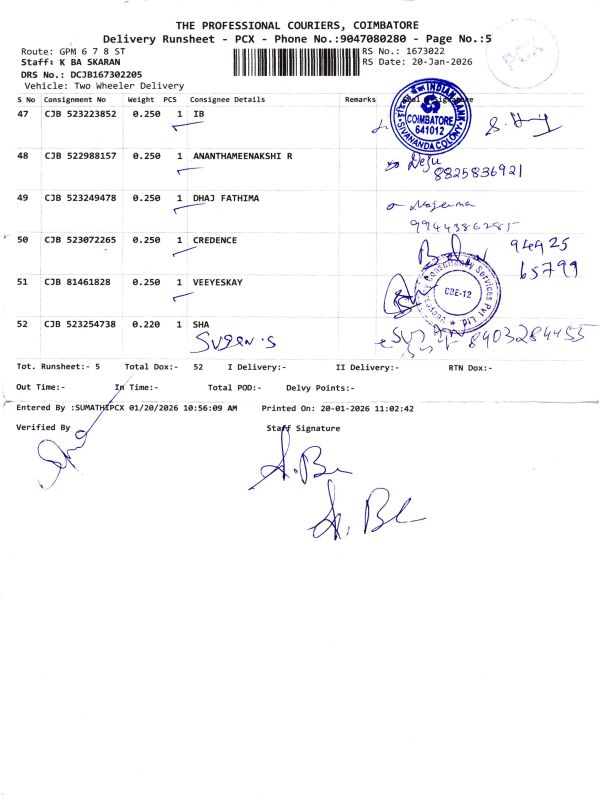 THE PROFESSIONAL COURIERS, COIMBATORE
Delivery Runsheet - PCX - Phone No.:9047080280 - Page No.:5
Route: GPM 6 7 8 ST
RS No.: 1673022
PCX
Staff: K BA SKARAN
RS Date: 20-Jan-2026
DRS No.: DCJB167302205
Vehicle: Two Wheeler Delivery
S No Consignment No Weight PCS Consignee Details Remarks Signature
47 CJB 523223852 0.250 1 IB
INDIAN BANK COIMBATORE 641012 SIVANANDA COLONY
48 CJB 522988157 0.250 1 ANANTHAMEENAKSHI R
8825836921
49 CJB 523249478 0.250 1 DHAJ FATHIMA
Najeema
9944386285
50 CJB 523072265 0.250 1 CREDENCE
94925
65799
51 CJB 81461828 0.250 1 VEEYESKAY
Consultancy Services Pvt Ltd CBE-12
52 CJB 523254738 0.220 1 SHA
8903284455
Tot. Runsheet:- 5 Total Dox:- 52 I Delivery:- II Delivery:- RTN Dox:-
Out Time:- In Time:- Total POD:- Delvy Points:-
Entered By :SUMATHIPCX 01/20/2026 10:56:09 AM Printed On: 20-01-2026 11:02:42
Verified By Staff Signature